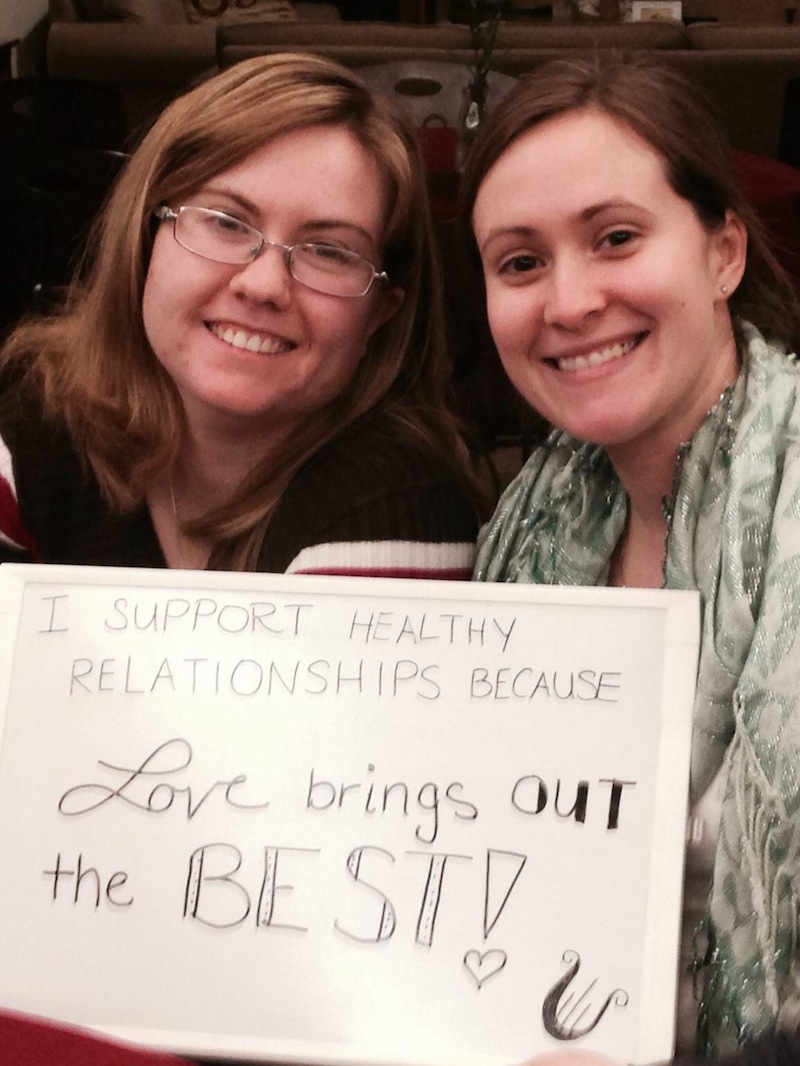 I SUPPORT HEALTHY
RELATIONSHIPS BECAUSE
Love brings OUT
the BEST!